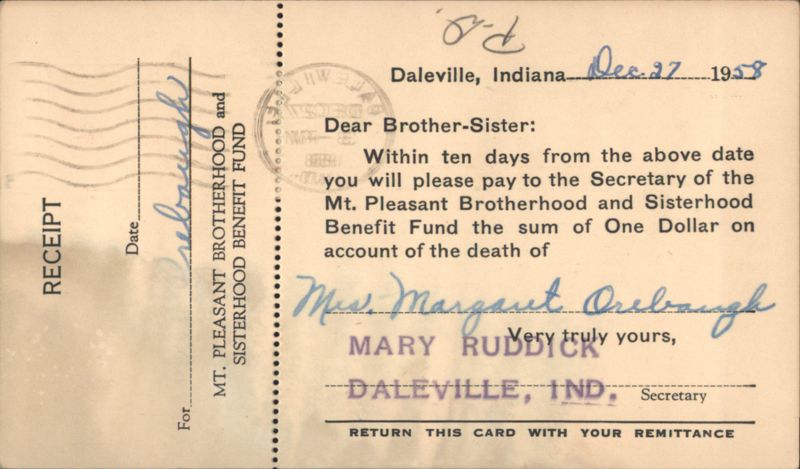 RECEIPT
Date
For Orebaugh
MT. PLEASANT BROTHERHOOD and
SISTERHOOD BENEFIT FUND
Pd.
Daleville, Indiana Dec. 27 1958
Dear Brother-Sister:
Within ten days from the above date
you will please pay to the Secretary of the
Mt. Pleasant Brotherhood and Sisterhood
Benefit Fund the sum of One Dollar on
account of the death of
Mrs. Margaret Orebaugh
Very truly yours,
MARY RUDDICK
DALEVILLE, IND.
Secretary
RETURN THIS CARD WITH YOUR REMITTANCE